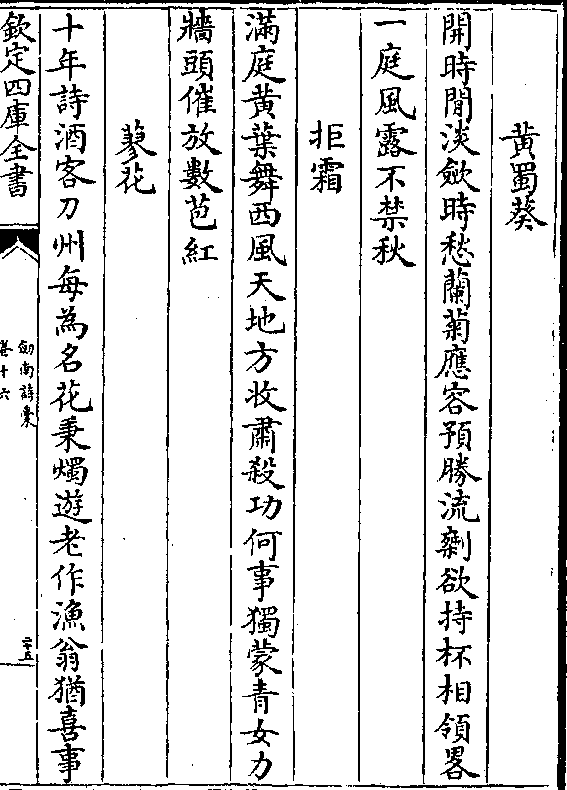 黄蜀葵
開時閒淡斂時愁蘭菊應容預勝流剩欲持杯相領畧
一庭風露不禁秋
拒霜
滿庭黄葉舞西風天地方收肅殺功何事獨蒙青女力
牆頭催放數苞紅
蓼花
十年詩酒客刀州每為名花秉燭遊老作漁翁猶喜事
欽定四庫全書
劍南詩稾
卷十六
二十五